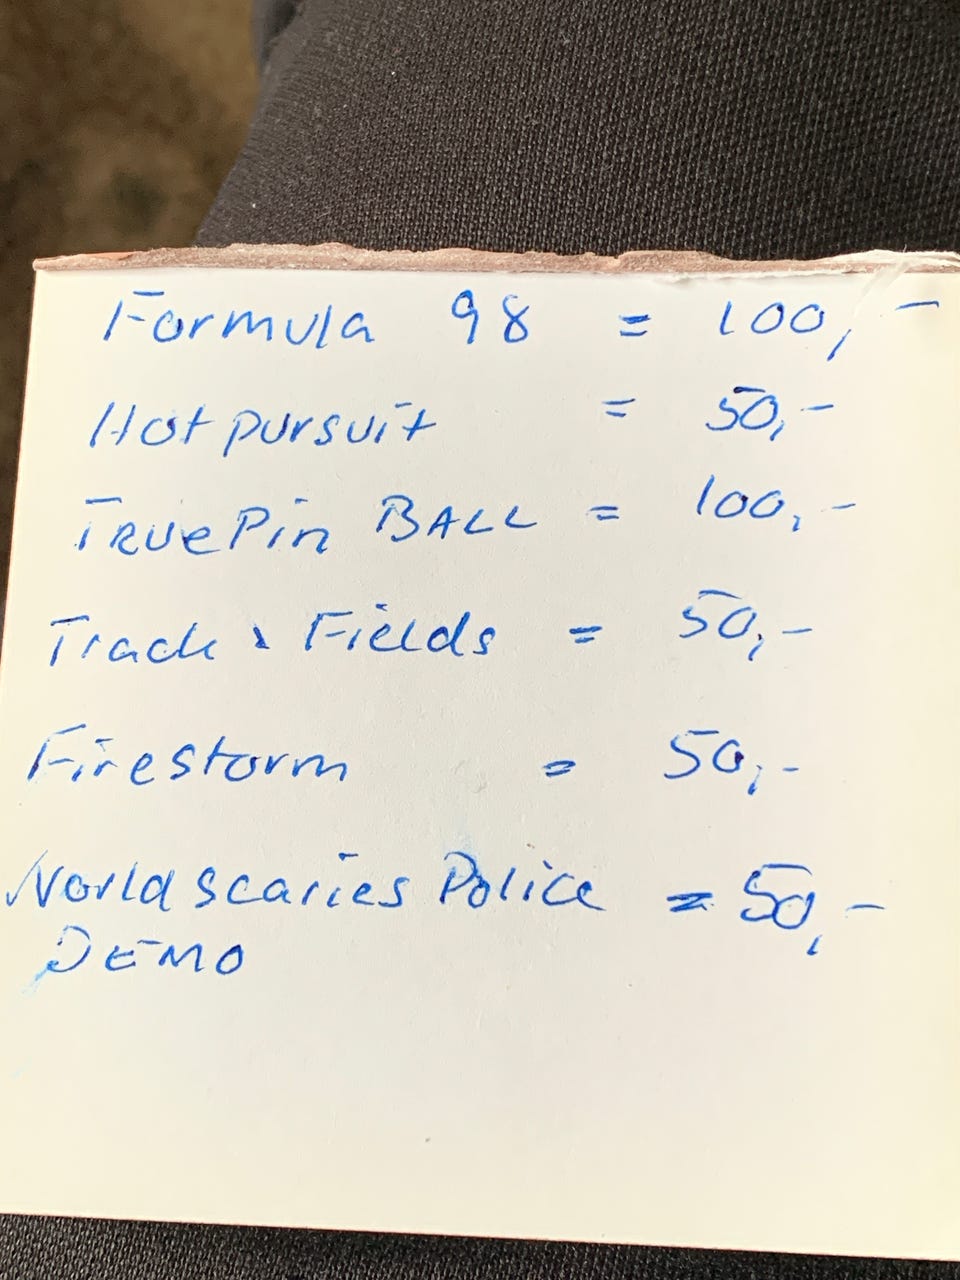 Formula 98 = 100,-
Hot pursuit = 50,-
TRUe Pin BALL = 100,-
Track & Fields = 50,-
Firestorm = 50,-
World scaries Police = 50,-
DEMO